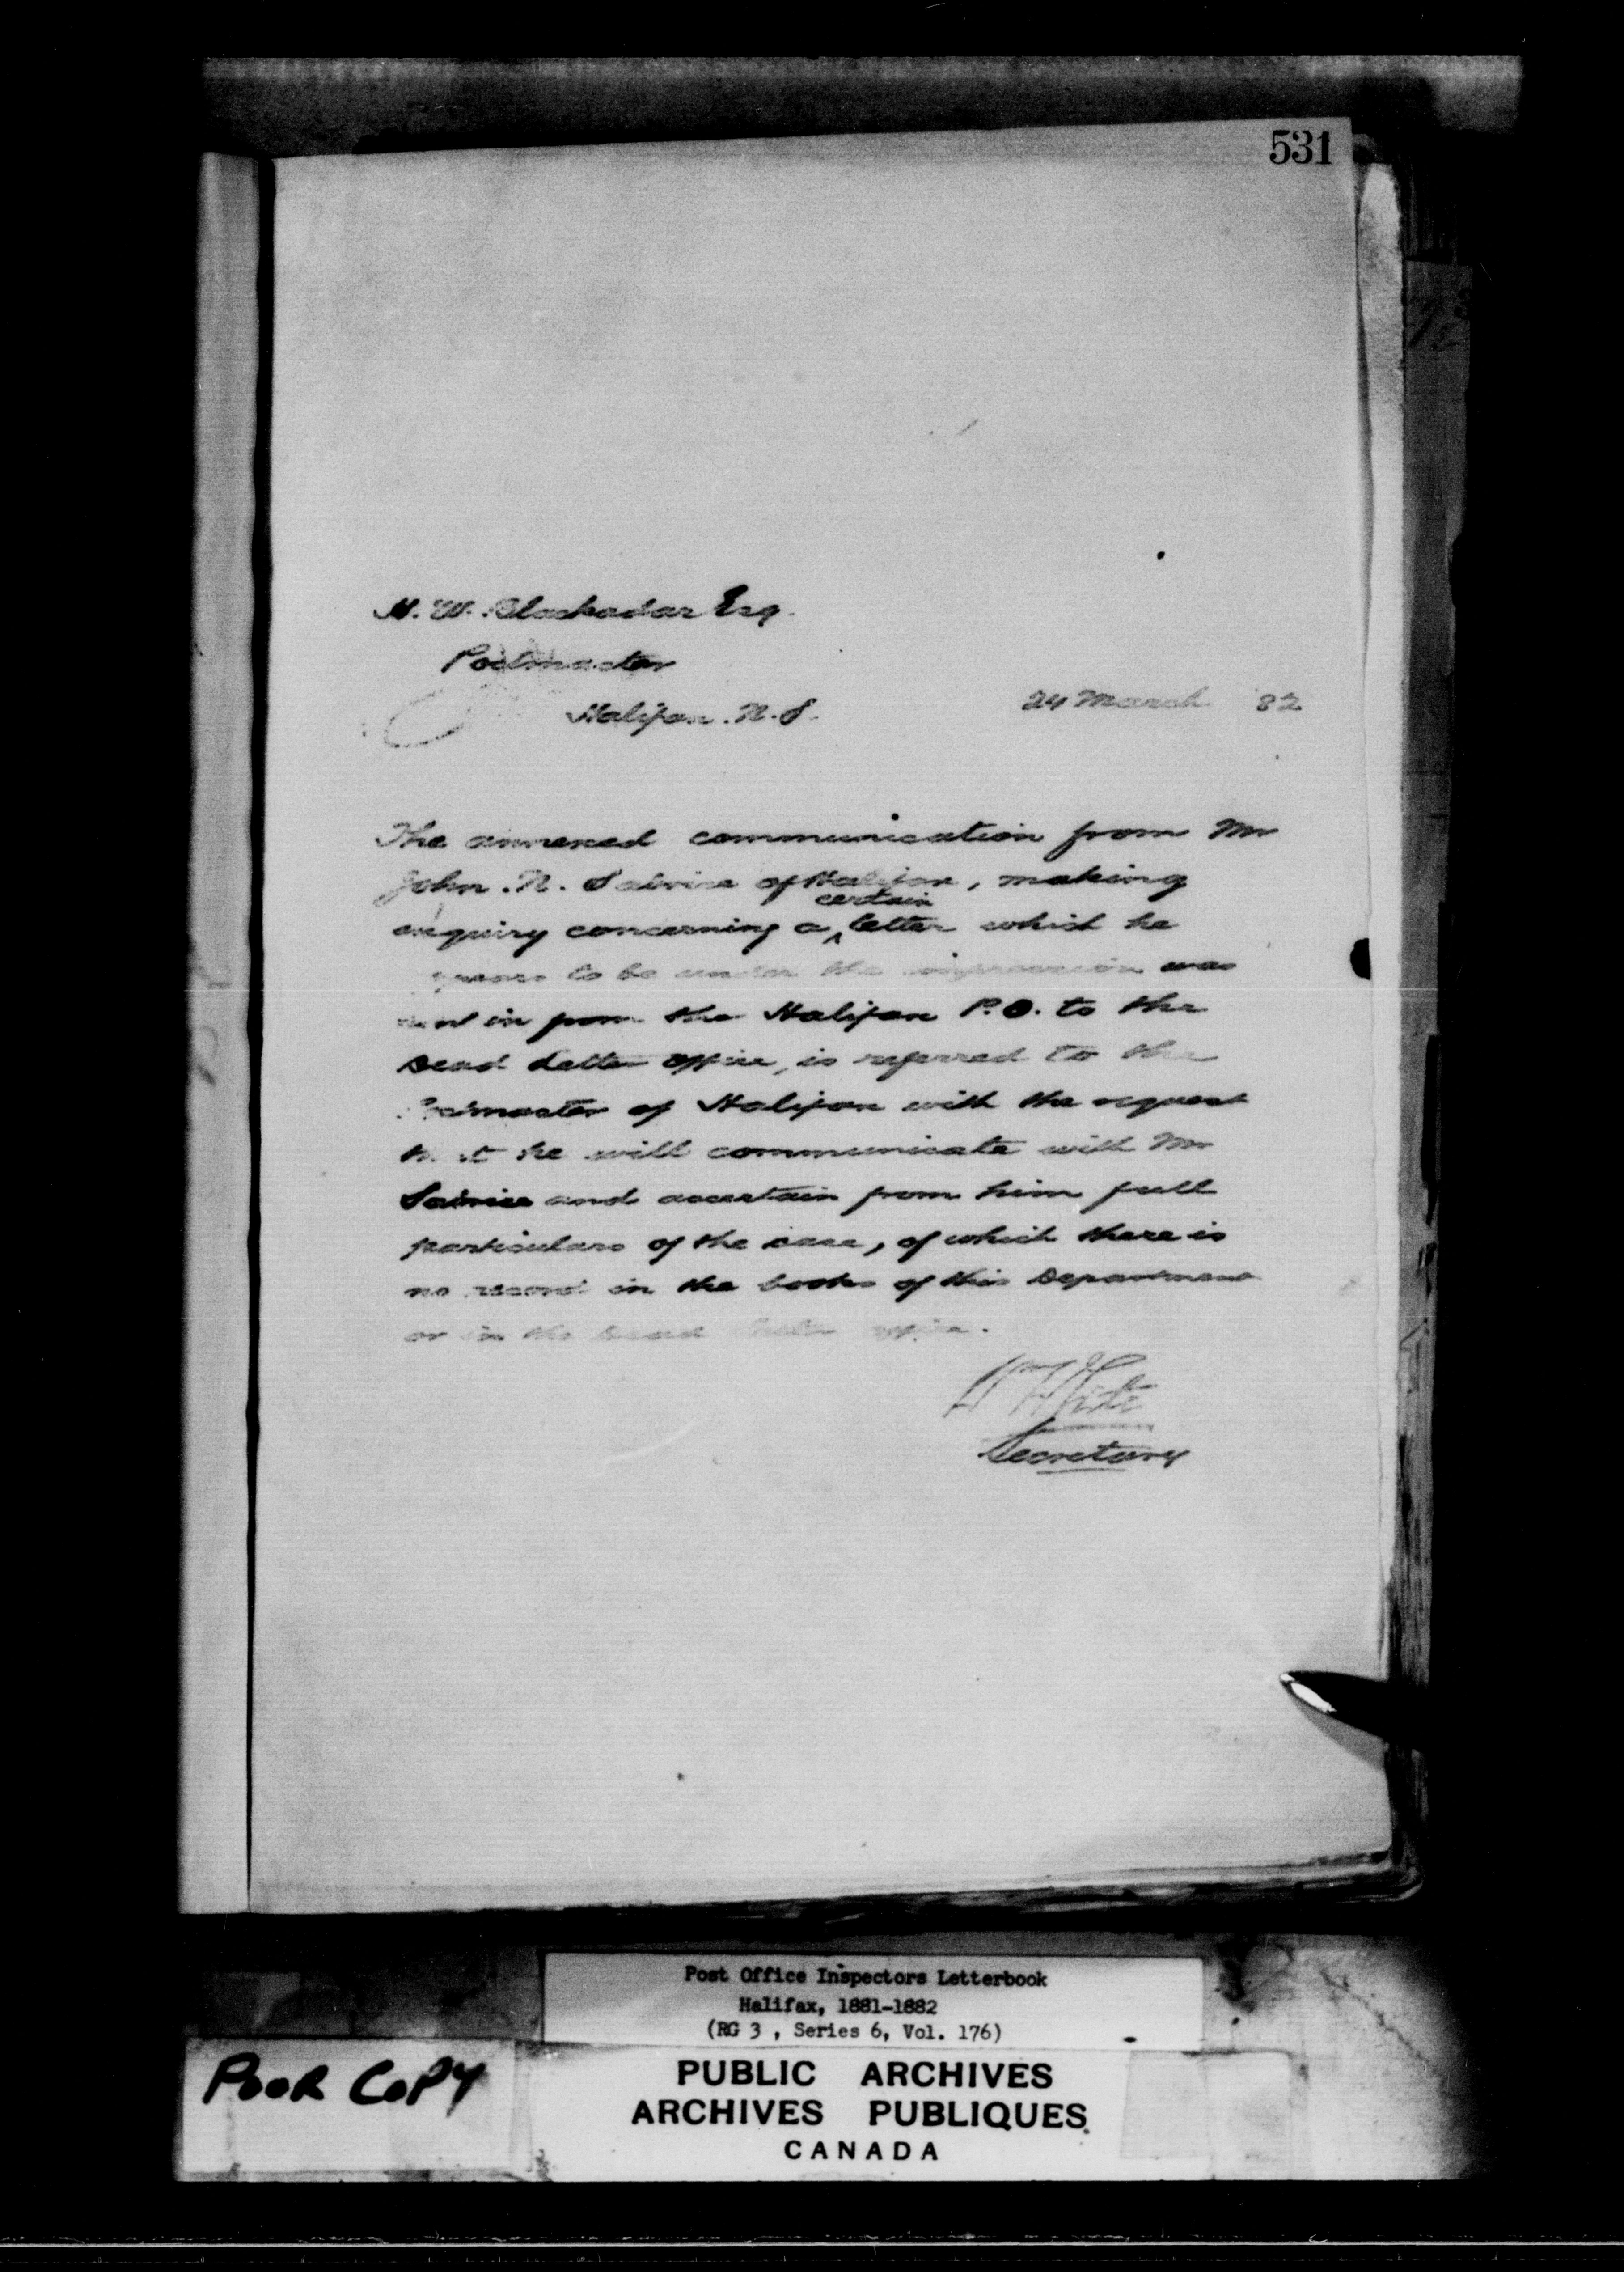 531
H. W. Blackadar Esq.
Postmaster
Halifax. N. S.
24 March 82
The annexed communication from Mr
John. N. of Halifax, making
certain
enquiry concerning a ^ letter which he
to be under the impression was
sent in from the Halifax P.O. to the
Dead Letter Office, is referred to the
Postmaster of Halifax with the request
that he will communicate with Mr
and ascertain from him full
particulars of the case, of which there is
no record in the books of this Department
or in the Dead Letter Office.
White
Secretary
Post Office Inspectors Letterbook
Halifax, 1881-1882
(RG 3 , Series 6, Vol. 176)
POOR COPY
PUBLIC ARCHIVES
ARCHIVES PUBLIQUES
CANADA